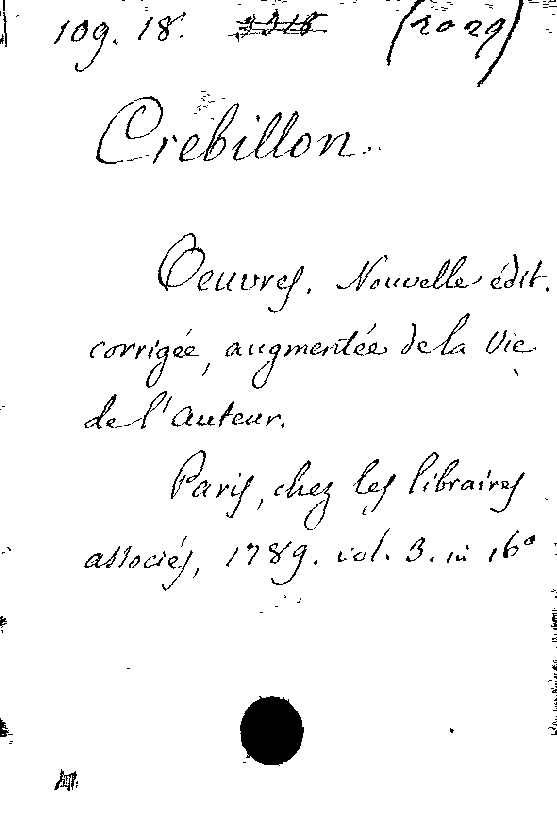 109. 18. 3318 (2029)
Crébillon.
Oeuvres. Nouvelle édit.
corrigée, augmentée de la Vie
de l'auteur.
Paris, chez les libraires
associés, 1789. vol. 3. in 16º